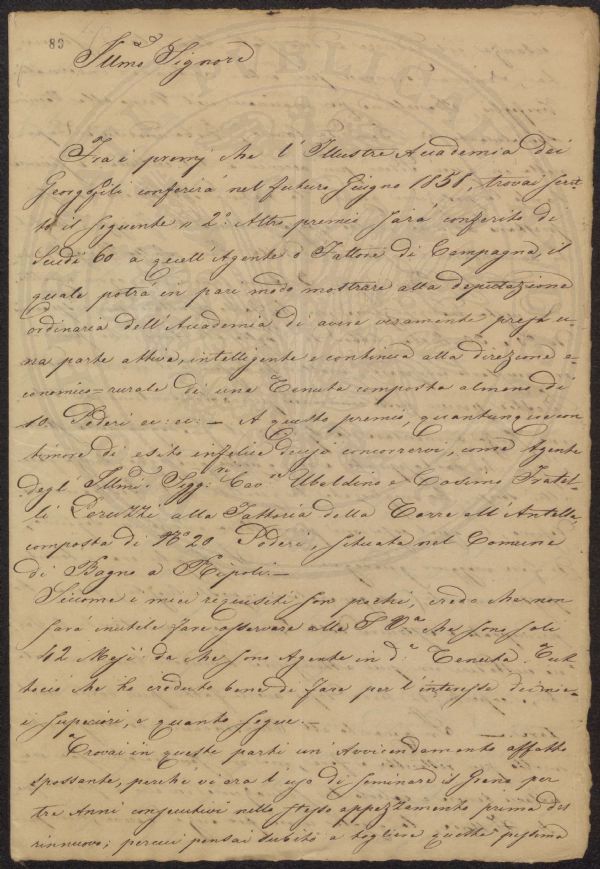 83
Illmo Signore
Fra i premj che l'Illustre Accademia dei
Georgofili conferirà nel futuro Giugno 1851, trovai scrit-
to il seguente „ 2.° Altro premio sarà conferito di
Scudi 60 a quell'Agente o Fattore di Campagna, il
quale potrà in pari modo mostrare alla deputazione
ordinaria dell'Accademia di avere veramente presa u-
na parte attiva, intelligente e continua alla direzione e-
conomico=rurale di una Tenuta composta almeno di
10. Poderi ec: ec: — A questo premio, quantunque con
timore di esito infelice concorrervi, come Agente
degl'Illmi Sigg.ri Cavri Ubaldino e Cosimo Fratel-
li Peruzzi alla Fattoria della Torre all'Antella
composta di N.° 20 Poderi, situata nel Comune
di Bagno a Ripoli. —
Siccome i miei requisiti son pochi, credo che non
sarà inutile fare osservare alla S. Va che sono soli
42 Mesi da che sono Agente in d.a Tenuta. Tut-
tociò che ho creduto bene di fare per l'interesse dei mie-
i superiori, è quanto segue. —
Trovai in queste parti un'Avvicendamento affatto
spossante, perchè vi era l'uso di seminare il Grano per
tre Anni consecutivi nello stesso appezzamento prima del
rinnuovo; percui pensai subito a togliere questa pessima